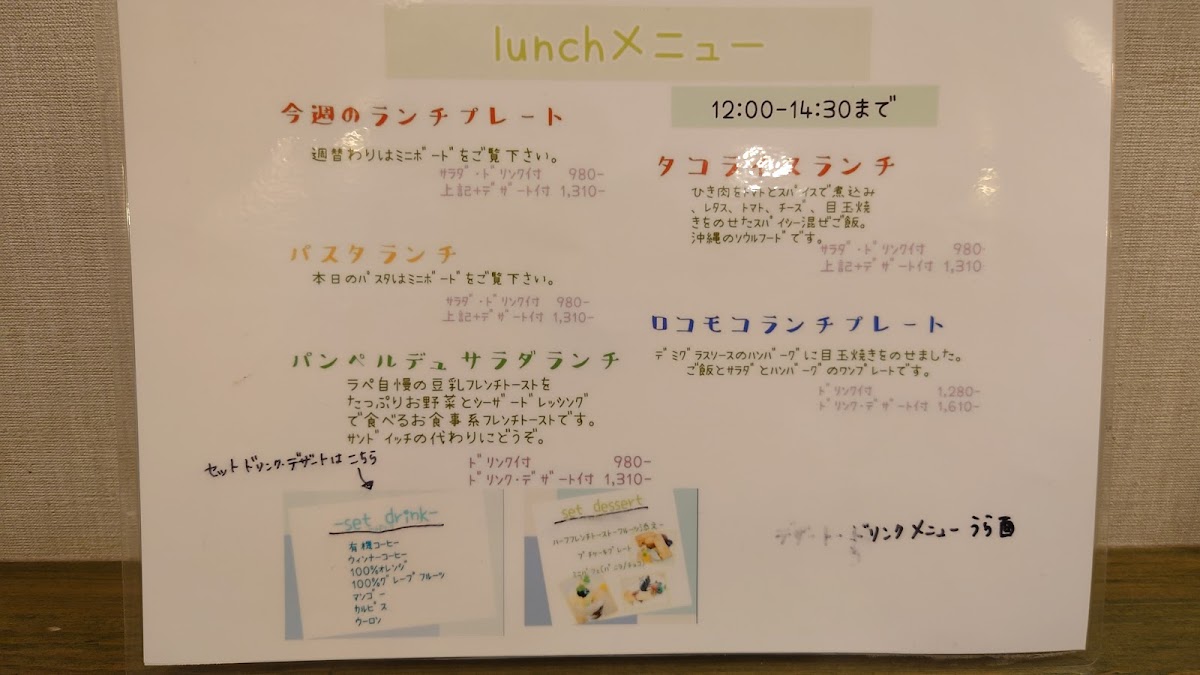 lunchメニュー
12:00-14:30まで
今週のランチプレート
週替わりはミニボードをご覧下さい。
サラダ・ドリンク付 980-
上記+デザート付 1,310-
パスタランチ
本日のパスタはミニボードをご覧下さい。
サラダ・ドリンク付 980-
上記+デザート付 1,310-
パンペルデュサラダランチ
ラペ自慢の豆乳フレンチトーストを
たっぷりお野菜とシーザードレッシング
で食べるお食事系フレンチトーストです。
サンドイッチの代わりにどうぞ。
ドリンク付 980-
ドリンク・デザート付 1,310-
タコライスランチ
ひき肉をトマトとスパイスで煮込み
、レタス、トマト、チーズ、目玉焼
きをのせたスパイシー混ぜご飯。
沖縄のソウルフードです。
サラダ・ドリンク付 980-
上記+デザート付 1,310
ロコモコランチプレート
デミグラスソースのハンバーグに目玉焼きをのせました。
ご飯とサラダとハンバーグのワンプレートです。
ドリンク付 1,280-
ドリンク・デザート付 1,610-
セットドリンク・デザートはこちら
-set drink-
有機コーヒー
ウィンナーコーヒー
100%オレンジ
100%グレープフルーツ
マンゴー
カルピス
ウーロン
set dessert
ハーフフレンチトースト-フルーツ添え-
プチケーキプレート
ミニパフェ(バニラ/チョコ)
デザート・ドリンクメニュー うら面